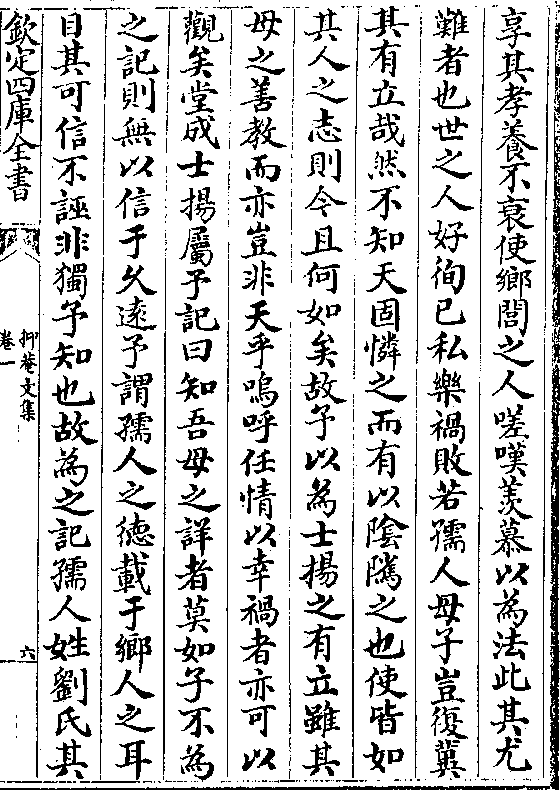 享其孝養不衰使鄉閭之人嗟嘆羨慕以為法此其尤
難者也世之人好徇已私樂禍敗若孺人母子豈復冀
其有立哉然不知天固憐之而有以隂隲之也使皆如
其人之志則今且何如矣故予以為士揚之有立雖其
母之善教而亦豈非天乎嗚呼任情以幸禍者亦可以
觀矣堂成士揚屬予記曰知吾母之詳者莫如子不為
之記則無以信于久遠予謂孺人之徳載于鄉人之耳
目其可信不誣非獨予知也故為之記孺人姓劉氏其
欽定四庫全書
抑菴文集
卷一
六